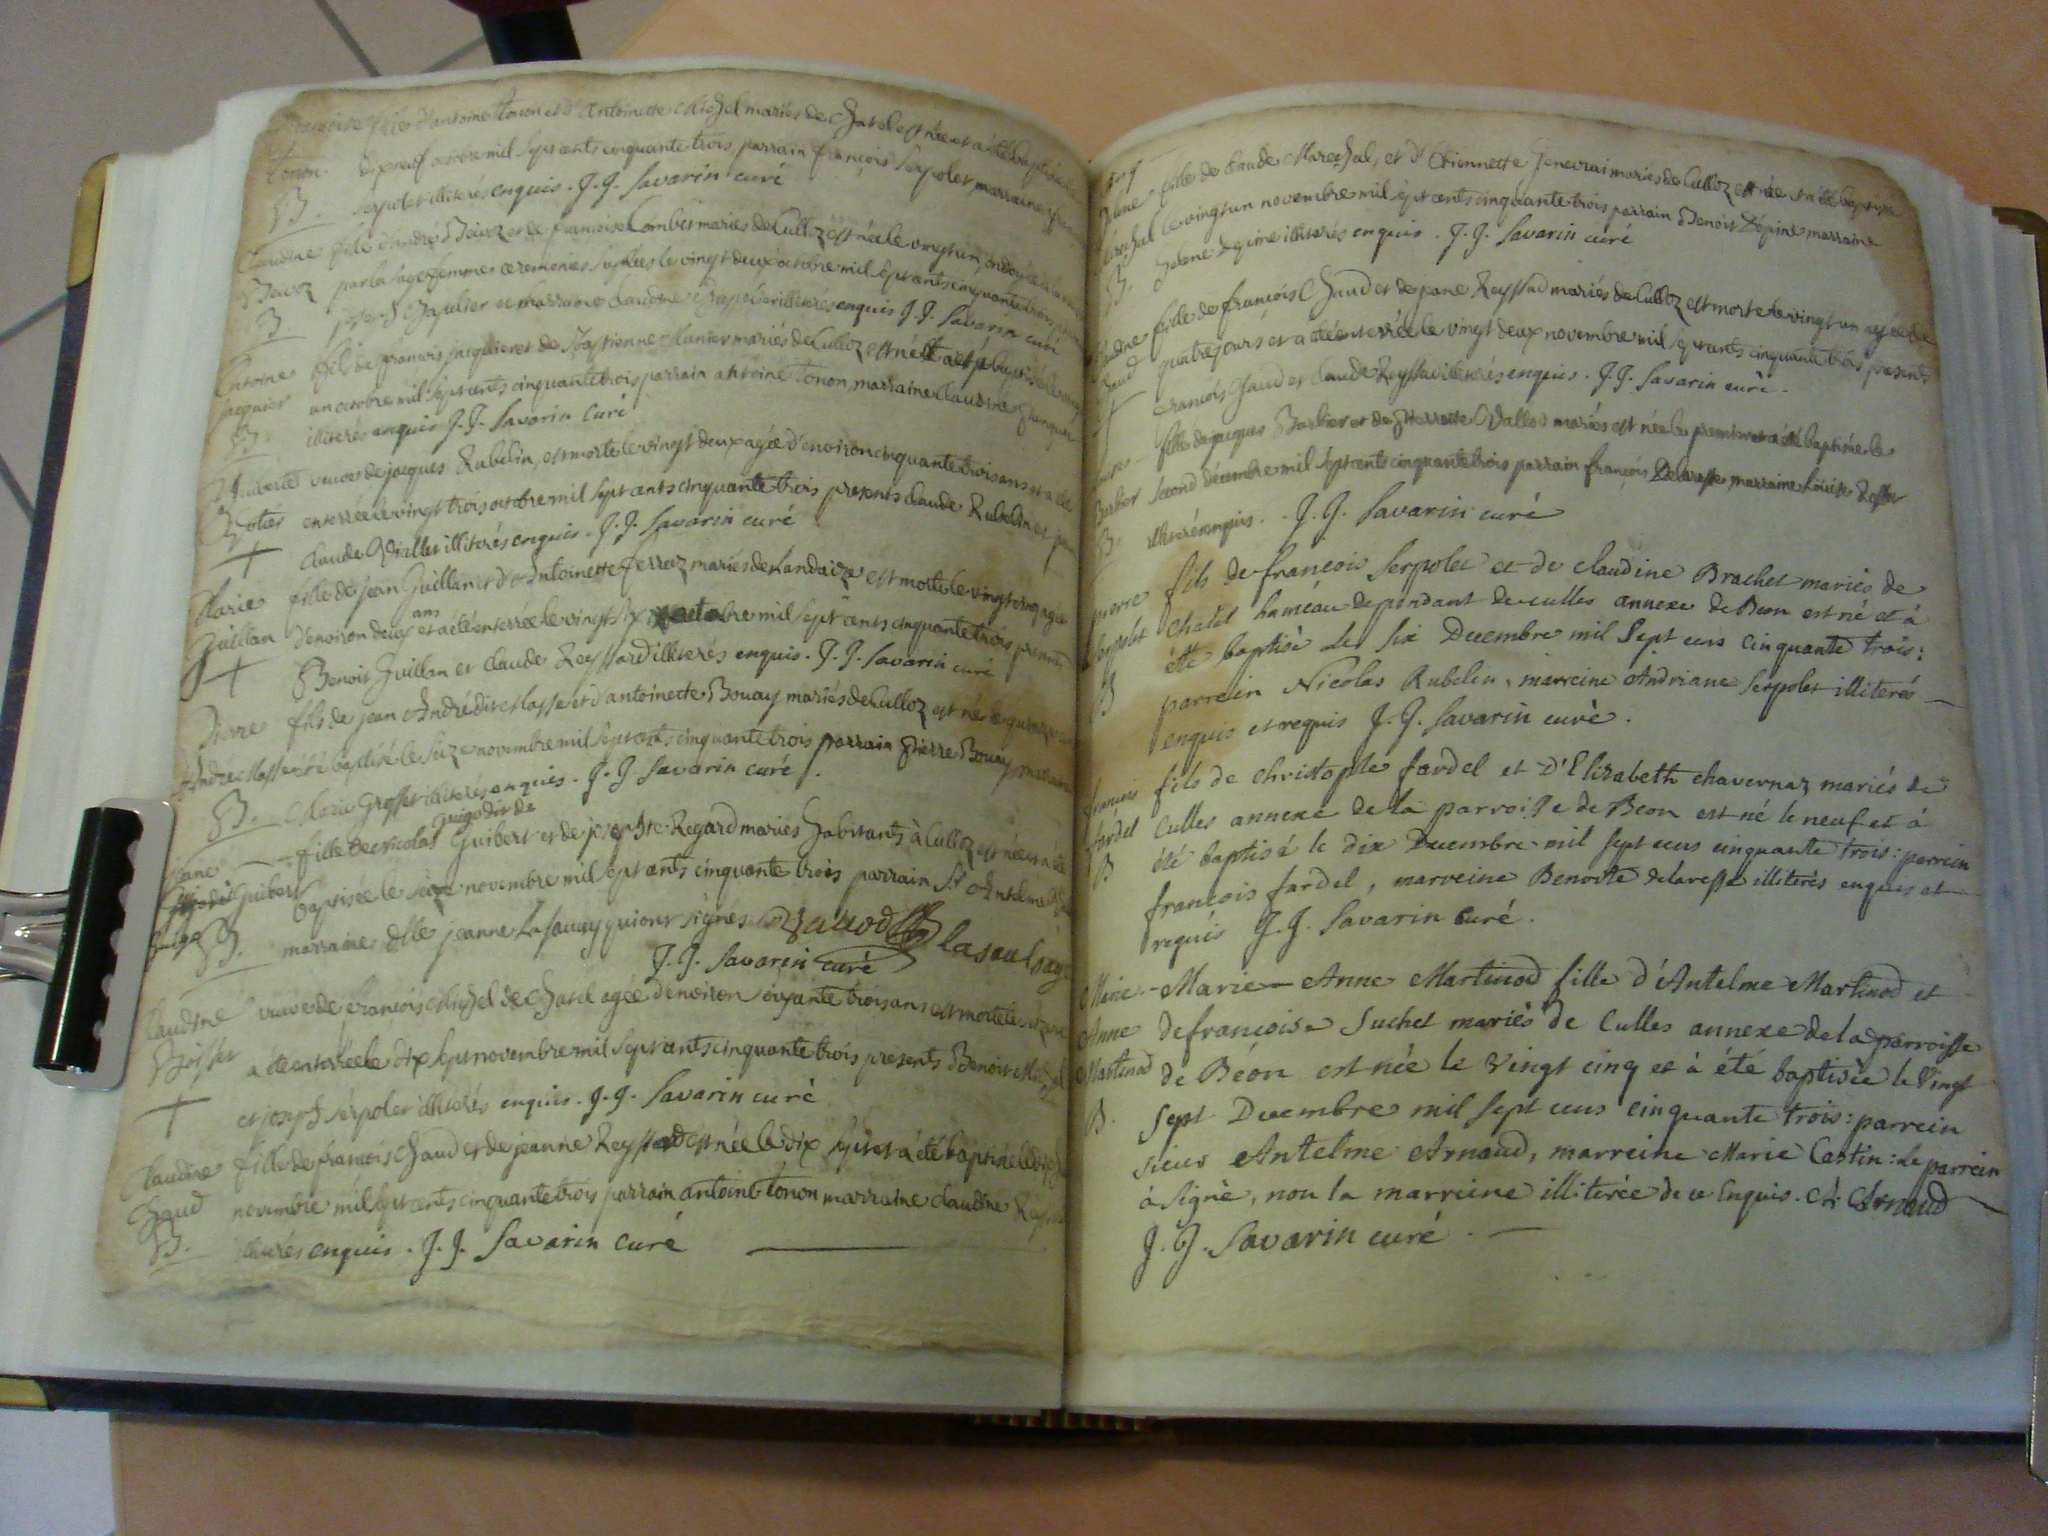 françoise fille d'antoine Tonon et d'Antoinette Michel mariés de Chatel est née et a été baptisée le
Tonon dixneuf octobre mil sept cents cinquante trois parrain françois Serpolet marraine
B. Serpolet illiterés enquis. J. J. Savarin curé
Claudine fille d'André et de françoise Combet mariés de Culloz est née le vingt un, ondoyée
par la sage femme ceremonies le vingt deux octobre mil sept cents cinquante trois
B. et marraine claudine illiterés enquis J. J. Savarin curé
Antoine fils de francois jacquier et de mariés de Culloz est né et a été baptisé le vingt
jacquier un octobre mil sept cents cinquante trois parrain antoine Tonon, marraine Claudine
B. illiterés enquis J. J. Savarin Curé
veuve de jacques Rubelin, est morte le vingt deux agée d'environ cinquante trois ans et a été
enterrée le vingt trois octobre mil sept cents cinquante trois presents claude Rubelin et
+ claude illiterés enquis. J. J. Savarin curé
Marie fille de jean Guillan et d'Antoinette mariés de est morte le vingt agée
Guillan d'environ deux ans et a été enterrée le vingt six octobre mil sept cents cinquante trois presents
+ Benoit Guillan et claude Reyssard illiterés enquis. J. J. Savarin curé
Pierre fils de jean André dit Masse et d'antoinette Bouay mariés de Culloz est né le quinze
André Masse été baptisé le seize novembre mil sept cents cinquante trois parrain Pierre Bouay
B. Marie Grosset illiterés enquis. J. J Savarin curé.
guigo dit de
jane fille de nicolas Guibert et de Regard mariés habitants à Culloz est née et a été
Guibert baptisée le seize novembre mil sept cents cinquante trois parrain Sr Antelme
B. marraine dlle jeanne qui ont signés
J. J. Savarin curé
Claudine veuve de francois Michel de Chatel agée d'environ soixante trois ans est morte le
a été enterrée le dix sept novembre mil sept cents cinquante trois présents Benoit Michel
+ et joseph Serpolet illiterés enquis. J. J. Savarin curé
Claudine fille de francois Chaud et de jeanne Reyssard est née le dix sept et a été baptisée le
Chaud novembre mil sept cents cinquante trois parrain antoine Tonon marraine claudine
B. illiterés enquis. J. J. Savarin curé
fille de claude Marechal, et d'Etiennette Genevrai mariés de Culloz est née et a été baptisée
le vingt un novembre mil sept cents cinquante trois parrain Benoit Dépine marraine
B. illiterés enquis. J. J. Savarin curé
Claudine fille de francois Chaud et de jane Reyssard mariés de Culloz est morte le vingt un agée de
Chaud quatre jours et a été enterrée le vingt deux novembre mil sept cents cinquante trois presents
+ francois Chaud et claude Reyssard illiterés enquis. J. J. Savarin curé.
fille de jacques Barbier et de Pierrette mariés est née le premier et a été baptisée le
Barbier second décembre mil sept cents cinquante trois parrain francois marraine Louise
B. illiterés enquis. J. J. Savarin curé
pierre fils de francois Serpolet et de claudine Brachet mariés de
Serpolet Chatel haméau dependant de culles annexe de Beon est né et à
été baptisé le six Decembre mil Sept cens cinquante trois:
B parrein Nicolas Rubelin, marreine Andriane Serpolet illiterés
enquis et requis J. J. Savarin curé.
francois fils de christophle fardel et D'Elizabeth chavernaz mariés de
fardel Culles annexe de la parroisse de Beon est né le neuf et à
B été baptisé le dix Decembre mil sept cens cinquante trois: parrein
francois fardel, marreine Benoite delavesse illiterés enquis et
requis J. J. Savarin Curé.
Marie Marie Anne Martinod fille d'Antelme Martinod et
Anne de francoise Suchet mariés de Culles annexe de la parroisse
Martinod de Béon est née le Vingt cinq et à été baptisée le Vingt
B. Sept Decembre mil sept cens cinquante trois: parrein
sieur Antelme Arnaud, marreine Marie Castin: le parrein
à Signé, non la marreine illiterée de ce Enquis. A: Arnaud
J. J. Savarin curé.